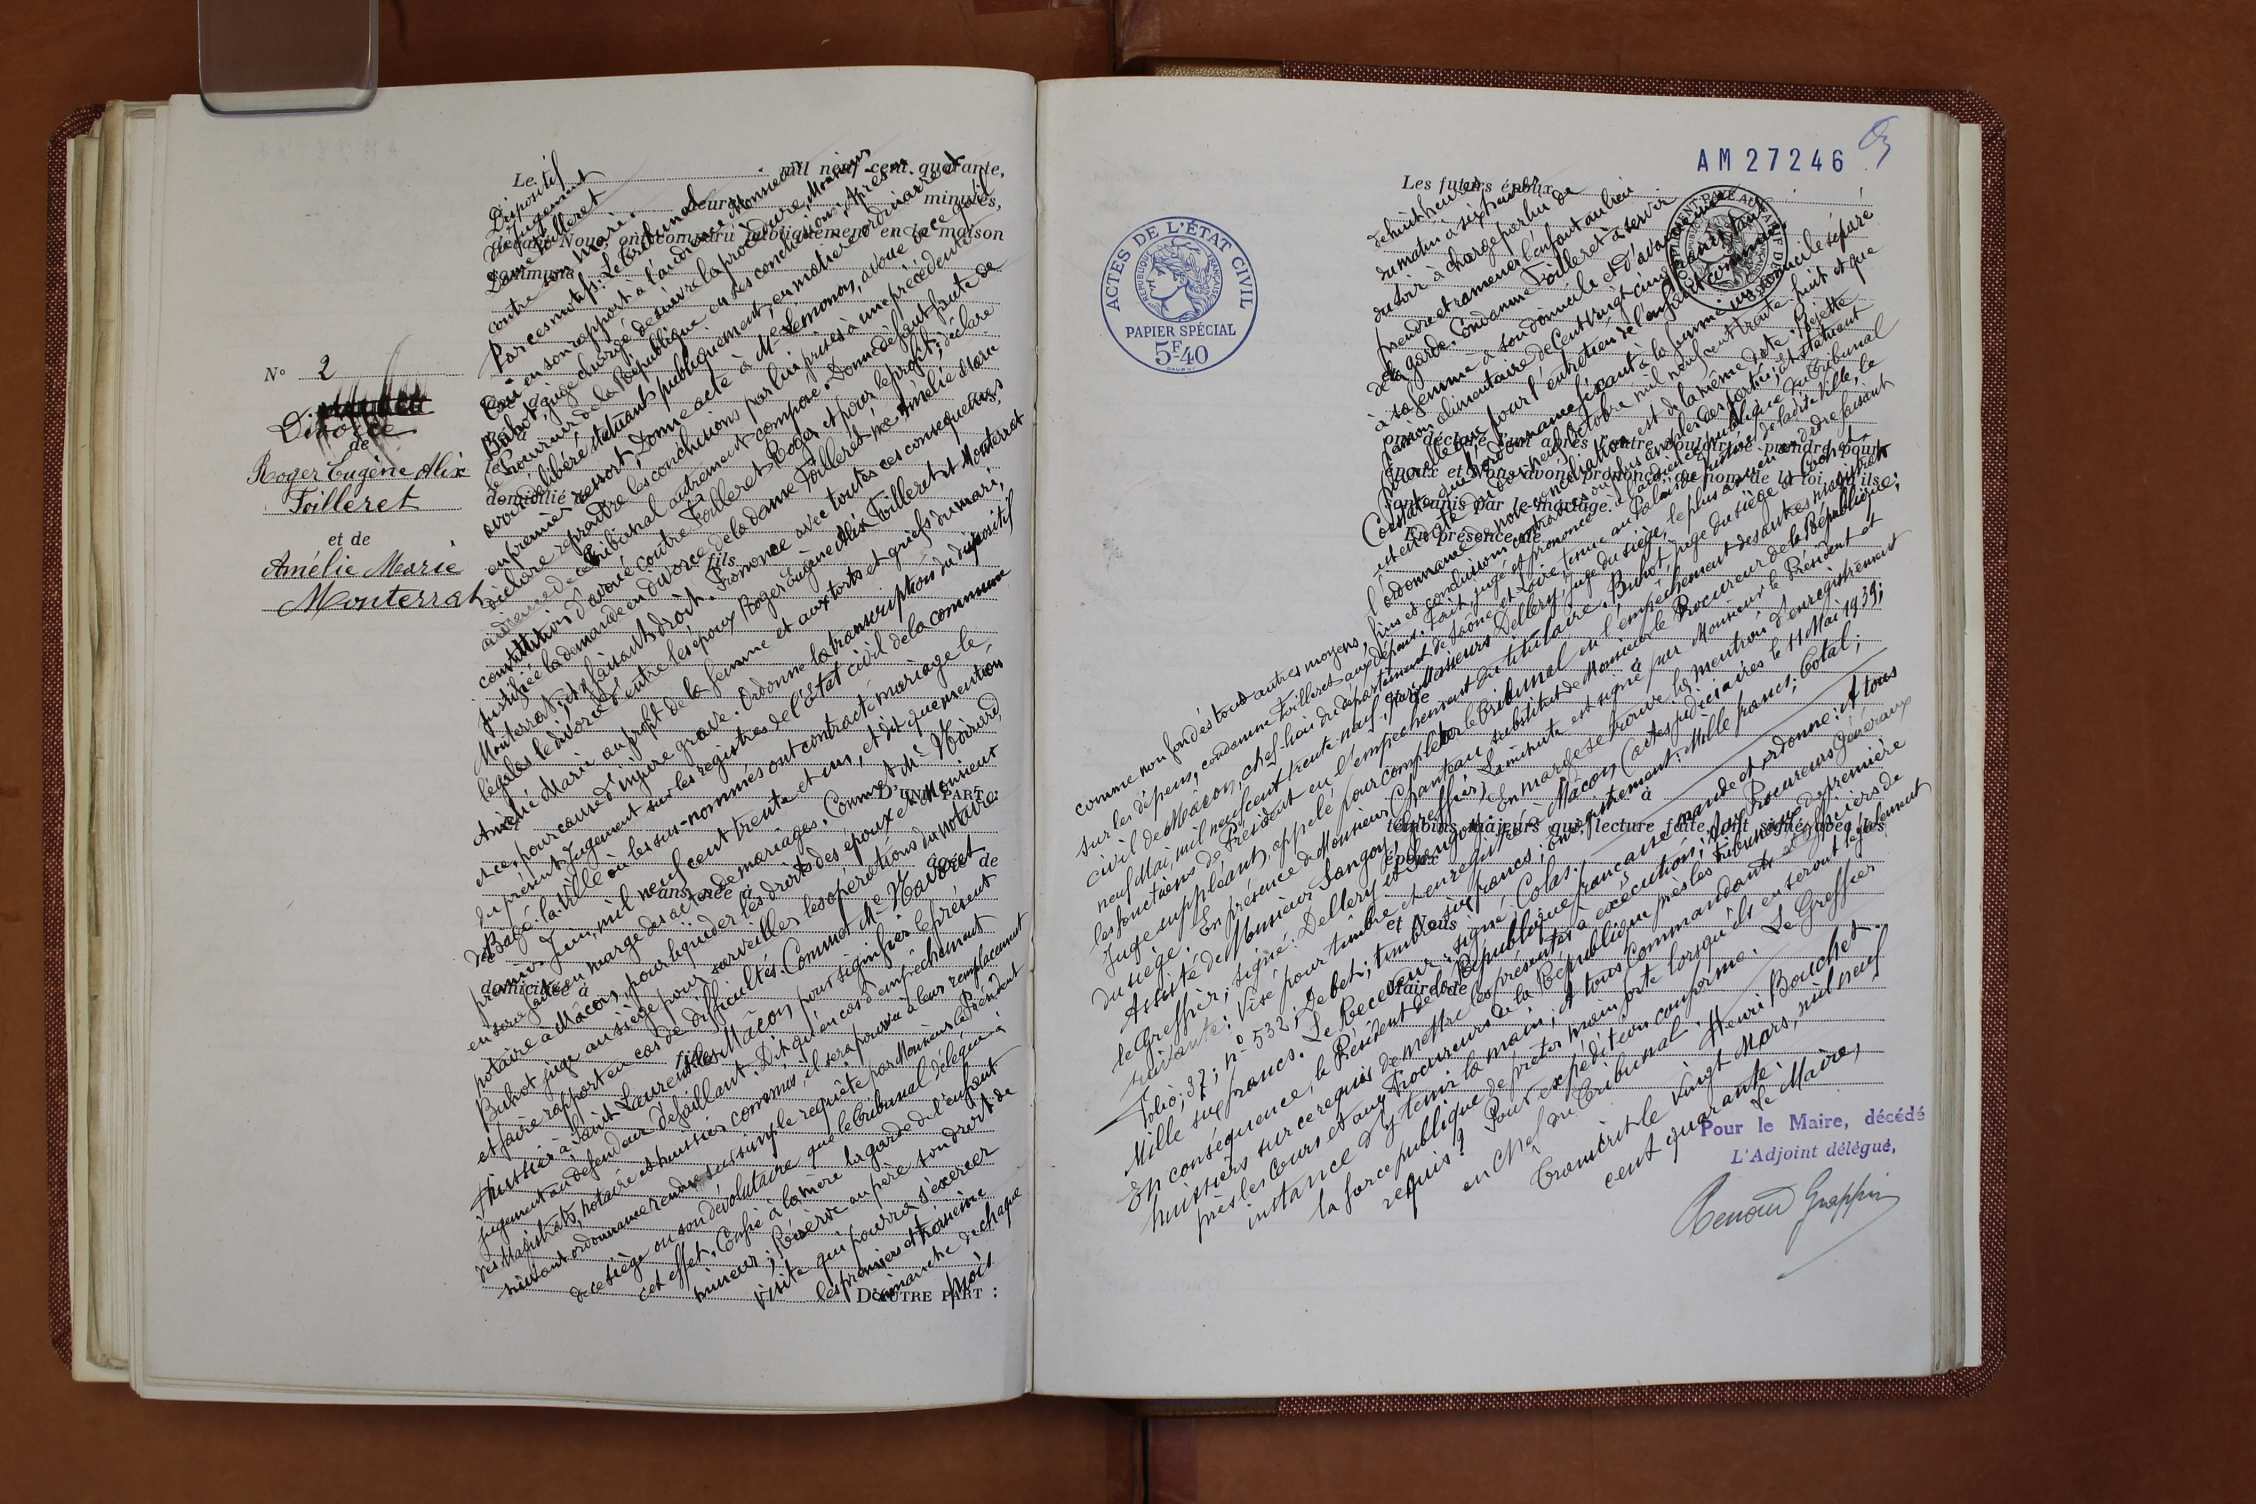 N° 2
Divorce
de
Roger Eugène Alix
Foilleret
et de
Amélie Marie
Monterrat
Le mil neuf cent quarante,
heures minutes,
devant Nous ont comparu publiquement en la maison
commune
domicilié
fils
D'UNE PART :
âgée de
ans, née à
domiciliée à
fille
D'AUTRE PART :
Dispositif
de jugement
Dame Foilleret
contre son mari.
Par ces motifs : Le Tribunal
Ouï en son rapport à l'audience Monsieur
Buhot, juge chargé de suivre la procédure, Monsieur
le Procureur de la République en ses conclusions ; Après en
avoir délibéré statuant publiquement, en matière ordinaire et
en premier ressort, Donne acte à Me Lemonon, avoué de ce qu'il
déclare reprendre les conclusions par lui prises à une précédente
audience de ce Tribunal autrement composé. Donne défaut faute de
constitution d'avoué contre Foilleret Roger et pour le profit ; déclare
justifiée la demande en divorce de la dame Foilleret née Amélie Marie
Monterrat, y faisant droit. Prononce avec toutes ces conséquences
légales le divorce d'entre les époux Roger Eugène Alix Foilleret et Monterrat
Amélie Marie au profit de la femme et aux torts et griefs du mari,
et ce, pour cause d'injure grave. Ordonne la transcription du dispositif
du présent Jugement sur les registres de l'Etat civil de la commune
de Bagé-la-Ville où les sus-nommés ont contracté mariage le
premier Juin, mil neuf cent trente et un, et dit que mention
en sera faite en marge des actes de mariages. Commet Me Noirard,
notaire à Mâcon, pour liquider les droits des époux et Monsieur
Buhot juge au siège pour surveiller les opérations du notaire
et faire rapport en cas de difficultés. Commet Me Navoret
huissier à Saint-Laurent-les-Mâcon pour signifier le présent
jugement au défendeur défaillant. Dit qu'en cas d'empêchement
des Magistrats, notaire et huissier commis, il sera pourvu à leur remplacement
suivant ordonnance rendue sur simple requête par Monsieur le Président
de ce siège ou son dévolutaire que le tribunal délègue à
cet effet. Confie à la mère la garde de l'enfant
mineur ; Réserve au père son droit de
visite qui pourra s'exercer
les premiers et troisième
dimanche de chaque
mois
AM 27246
ACTES DE L'ÉTAT CIVIL
RÉPUBLIQUE FRANÇAISE
PAPIER SPÉCIAL
5F40
Les futurs époux
ont déclaré l'un après l'autre vouloir se prendre pour
époux et Nous avons prononcé, au nom de la loi, qu'ils
sont unis par le mariage.
En présence de
témoins majeurs qui, lecture faite, ont signé avec les
époux
et Nous
Maire de
de huit heures
du matin à six heures
du soir à charge par lui de
prendre et ramener l'enfant au lieu
de la garde. Condamne Foilleret à servir
à sa femme à son domicile et d'avance une
pension alimentaire de Cent vingt cinq francs par
mois pour l'entretien de l'enfant commun.
Constate que l'ordonnance fixant à la femme un domicile séparé
est en date du vingt octobre mil neuf cent trente huit et que
l'ordonnance de non conciliation est de la même date. Rejette
fins et conclusions contraires ou plus amples des parties ; et statuant
comme non fondés tous autres moyens,
sur les dépens, condamne Foilleret aux dépens. Fait, jugé et prononcé à l'audience publique du Tribunal
civil de Mâcon, chef-lieu du département de Saône et Loire, tenue au Palais de justice de la dite Ville, le
neuf Mai, mil neuf cent trente neuf, par Messieurs Dellery, juge du siège, le plus ancien en ordre faisant
les fonctions de Président en l'empêchement du titulaire. Buhot, juge du siège et
Juge suppléant, appelé pour compléter le Tribunal en l'empêchement des autres magistrats
du siège. En présence de Monsieur Chanteau substitut de Monsieur le Procureur de la République ;
Assisté de Monsieur Sangoy, greffier. La minute est signée par Monsieur le Président et
le Greffier, signé : Dellery et Sangoy. En marge se trouve la mention d'enregistrement
suivante : Visé pour timbre et enregistré à Mâcon (actes judiciaires) le 11 Mai 1939 ;
Folio, 37 ; n° 532 ; Débet ; timbre six francs ; enregistrement : Mille francs ; total ;
Mille six francs. Le Receveur : signé : Colas.
En conséquence, le Président de la République française mande et ordonne : A tous
huissiers sur ce requis de mettre les présentes à exécution ; Aux Procureurs Généraux
près les cours et aux Procureurs de la République près les Tribunaux de première
instance d'y tenir la main ; A tous Commandants et officiers de
la force publique de prêter main forte lorsqu'ils en seront légalement
requis. Pour expédition conforme. Le Greffier
en chef du Tribunal : Henri Bouchet.
Transcrit le vingt Mars, mil neuf
cent quarante.
Le Maire,
Pour le Maire, décédé
L'Adjoint délégué,